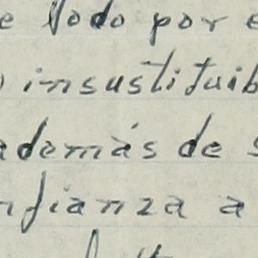 e todo por e
o insustituib
además de s
nfianza a